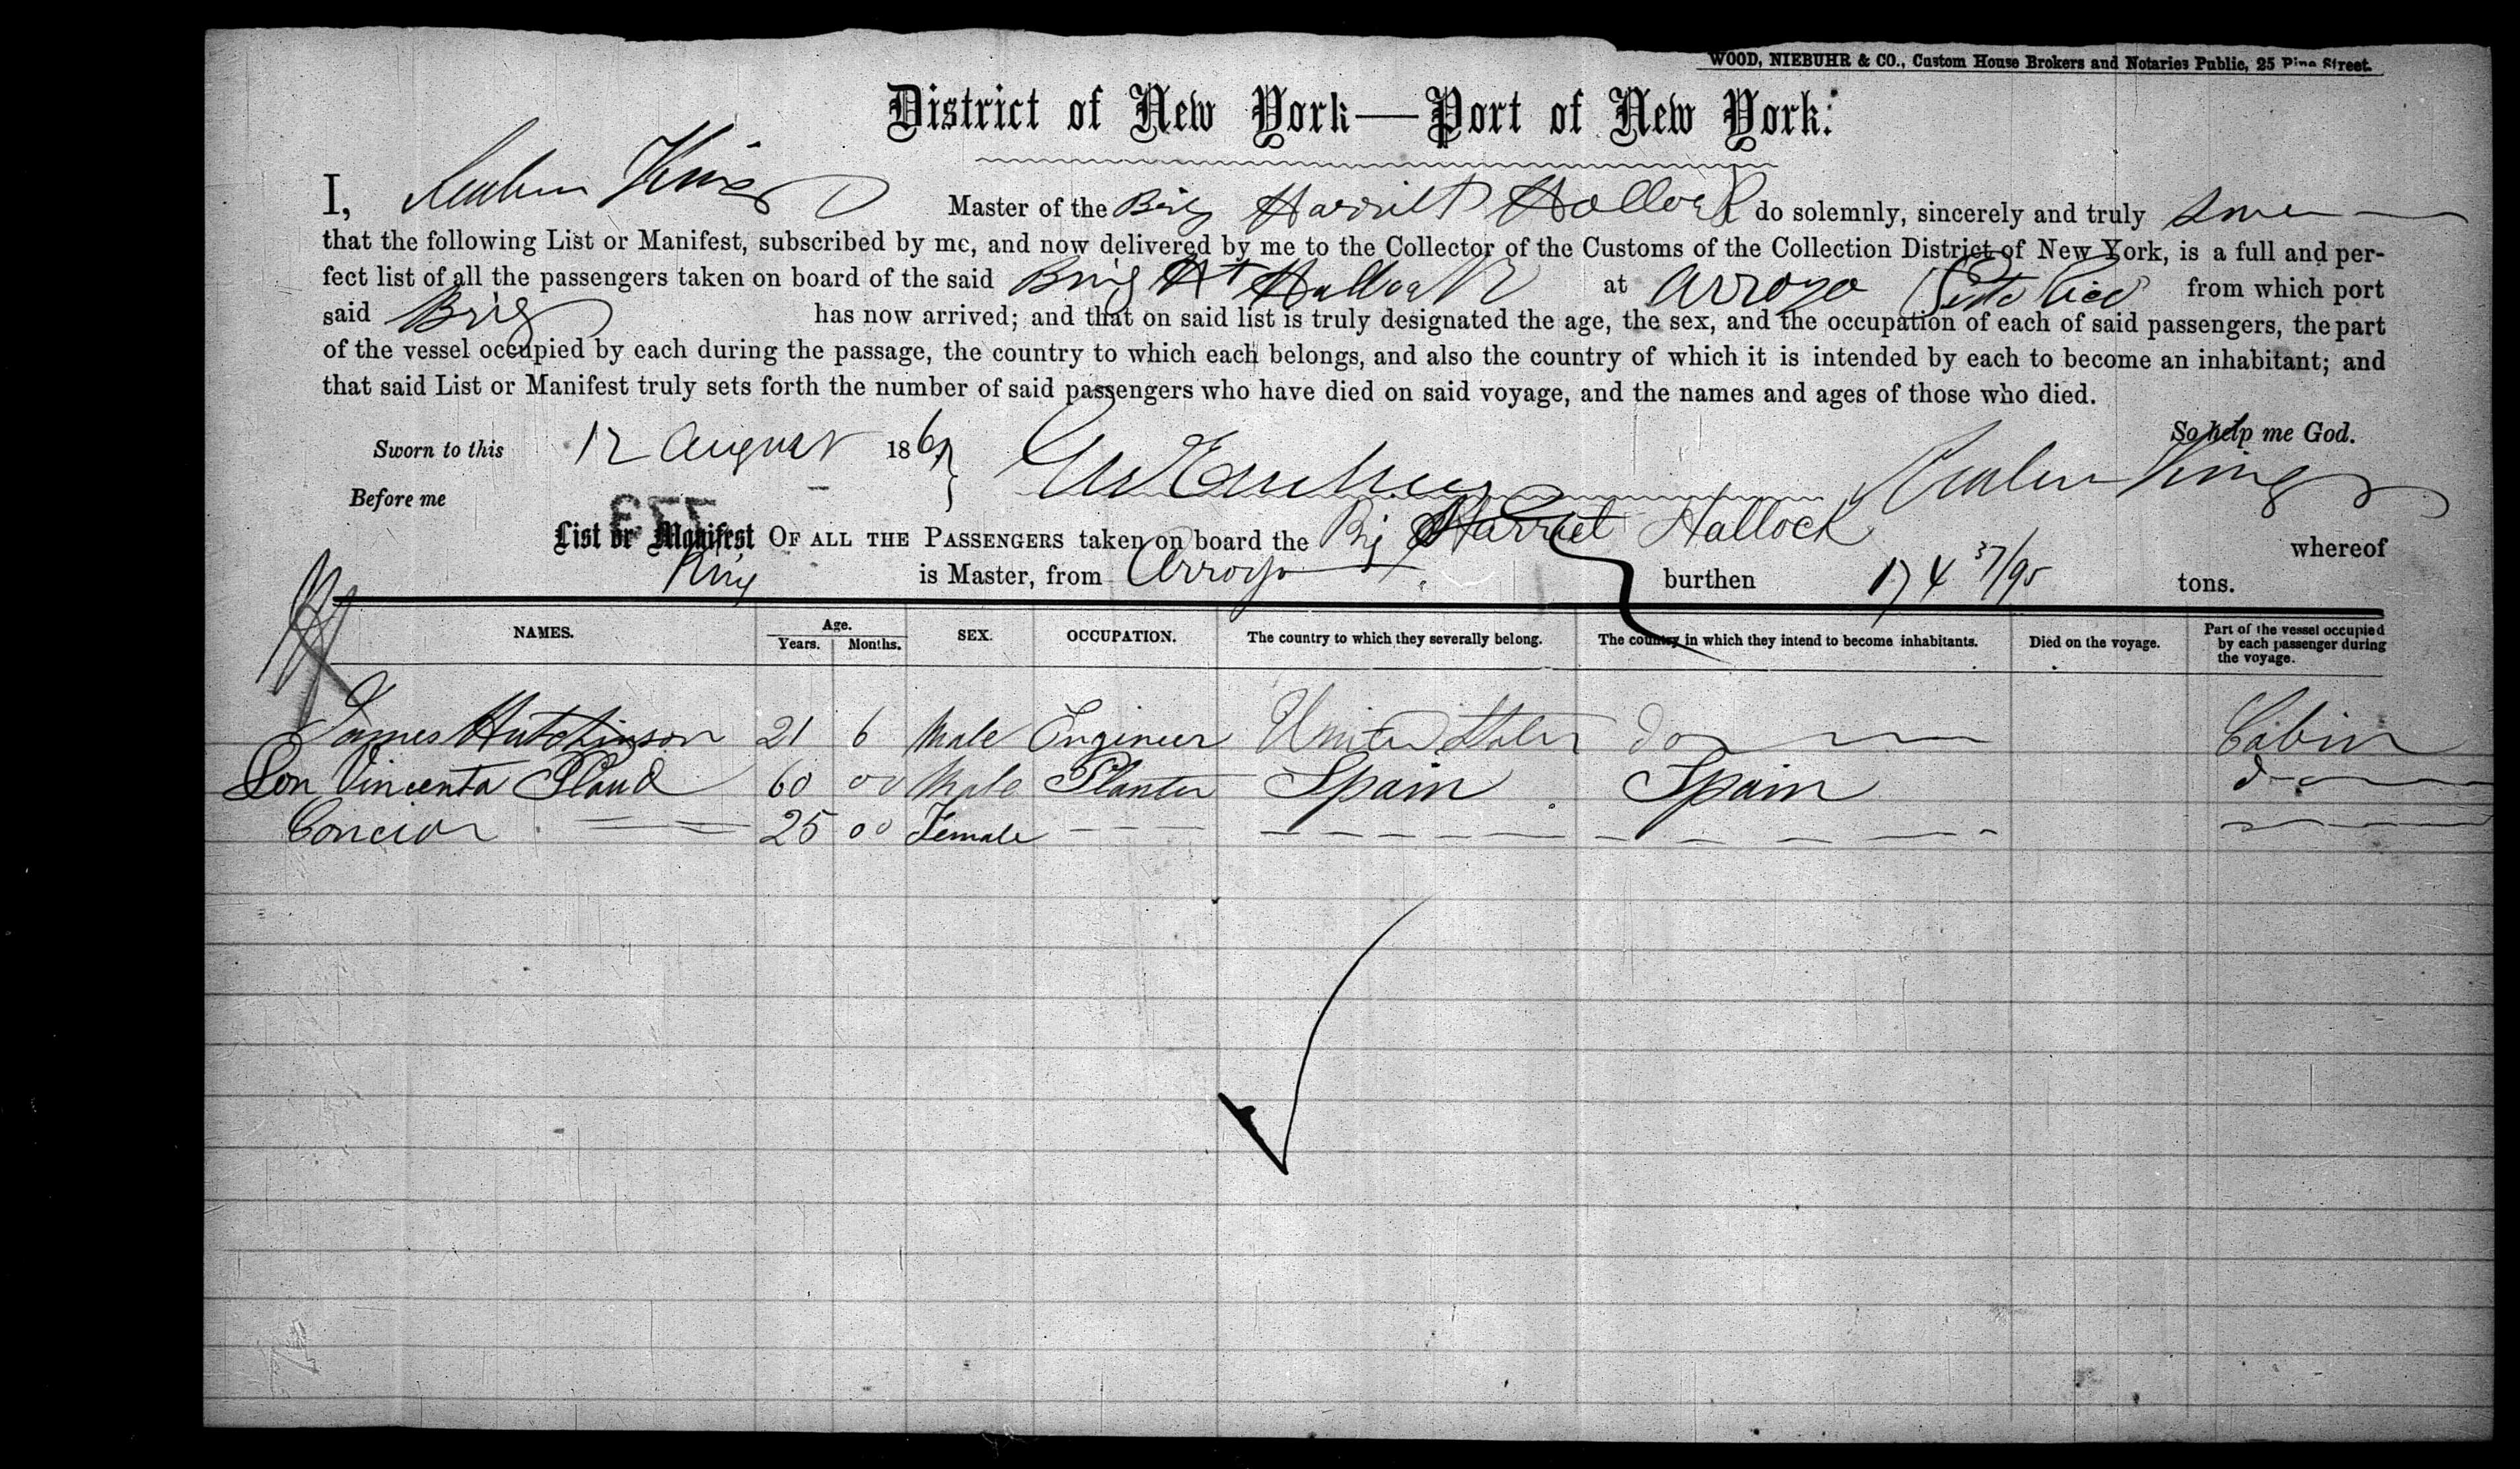 WOOD, NIEBUHR & CO., Custom House Brokers and Notaries Public, 25 Pine Street.
District of New York—Port of New York.
I, Reuben King Master of the Brig Harriet Hallock do solemnly, sincerely and truly swear
that the following List or Manifest, subscribed by me, and now delivered by me to the Collector of the Customs of the Collection District of New York, is a full and per-
fect list of all the passengers taken on board of the said Brig Ht Hallock at Arroyo Porto Rico from which port
said Brig has now arrived; and that on said list is truly designated the age, the sex, and the occupation of each of said passengers, the part
of the vessel occupied by each during the passage, the country to which each belongs, and also the country of which it is intended by each to become an inhabitant; and
that said List or Manifest truly sets forth the number of said passengers who have died on said voyage, and the names and ages of those who died.
So help me God.
Sworn to this 12 August 186
Before me Reuben King
List or Manifest OF ALL THE PASSENGERS taken on board the Brig Harriet Hallock whereof
King is Master, from Arroyo burthen 174 37/95 tons.
NAMES. Age. Years. Months. SEX. OCCUPATION. The country to which they severally belong. The country in which they intend to become inhabitants. Died on the voyage. Part of the vessel occupied by each passenger during the voyage.
James Hutchinson 21 6 Male Engineer United States do Cabin
Don Vincenta Plaud 60 00 Male Planter Spain Spain do
Concion 25 00 Female